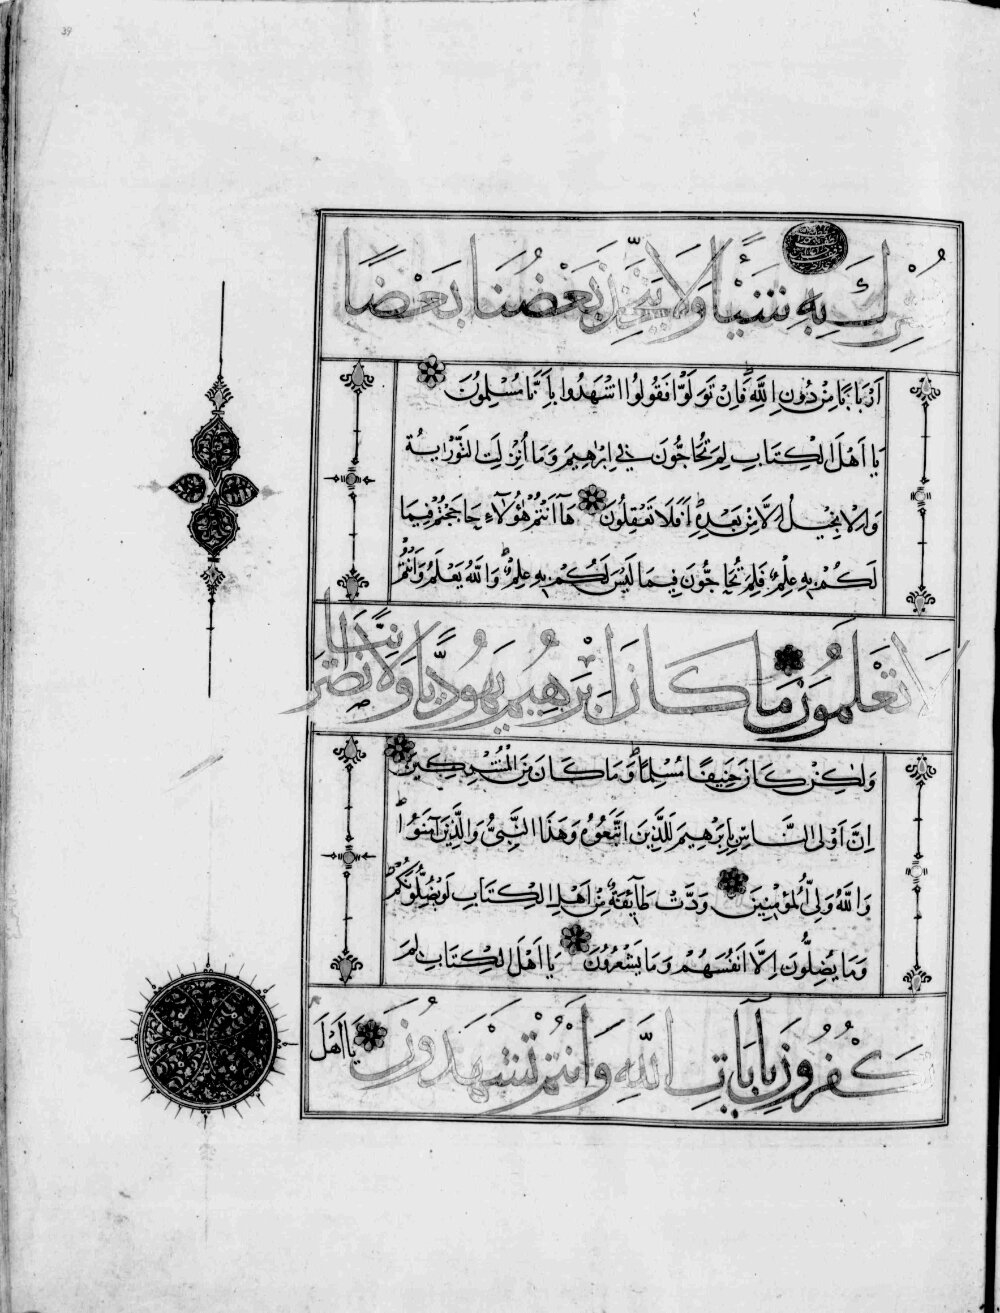 39
نُشْرِكَ بِهِ شَيْئًا وَلَا يَتَّخِذَ بَعْضُنَا بَعْضًا
اَرْبَابًا مِنْ دُونِ اللَّهِ فَاِنْ تَوَلَّوْا فَقُولُوا اشْهَدُوا بِاَنَّا مُسْلِمُونَ
يَا اَهْلَ الْكِتَابِ لِمَ تُحَاجُّونَ فِي اِبْرٰهِيمَ وَمَا اُنْزِلَتِ التَّوْرَايةُ
وَالْاِنْجِيلُ اِلَّا مِنْ بَعْدِهِ اَفَلَا تَعْقِلُونَ هَا اَنْتُمْ هٰؤُلَاءِ حَاجَجْتُمْ فِيمَا
لَكُمْ بِهِ عِلْمٌ فَلِمَ تُحَاجُّونَ فِيمَا لَيْسَ لَكُمْ بِهِ عِلْمٌ وَاللَّهُ يَعْلَمُ وَاَنْتُمْ
لَا تَعْلَمُونَ مَا كَانَ اِبْرٰهِيمُ يَهُودِيًّا وَلَا نَصْرَانِيًّا
وَلٰكِنْ كَانَ حَنِيفًا مُسْلِمًا وَمَا كَانَ مِنَ الْمُشْرِكِينَ
اِنَّ اَوْلَى النَّاسِ بِاِبْرٰهِيمَ لَلَّذِينَ اتَّبَعُوهُ وَهَذَا النَّبِيُّ وَالَّذِينَ آمَنُوا
وَاللَّهُ وَلِيُّ الْمُؤْمِنِينَ وَدَّتْ طَائِفَةٌ مِنْ اَهْلِ الْكِتَابِ لَوْ يُضِلُّونَكُمْ
وَمَا يُضِلُّونَ اِلَّا اَنْفُسَهُمْ وَمَا يَشْعُرُونَ يَا اَهْلَ الْكِتَابِ لِمَ
تَكْفُرُونَ بِاٰيَاتِ اللَّهِ وَاَنْتُمْ تَشْهَدُونَ يَا اَهْلَ